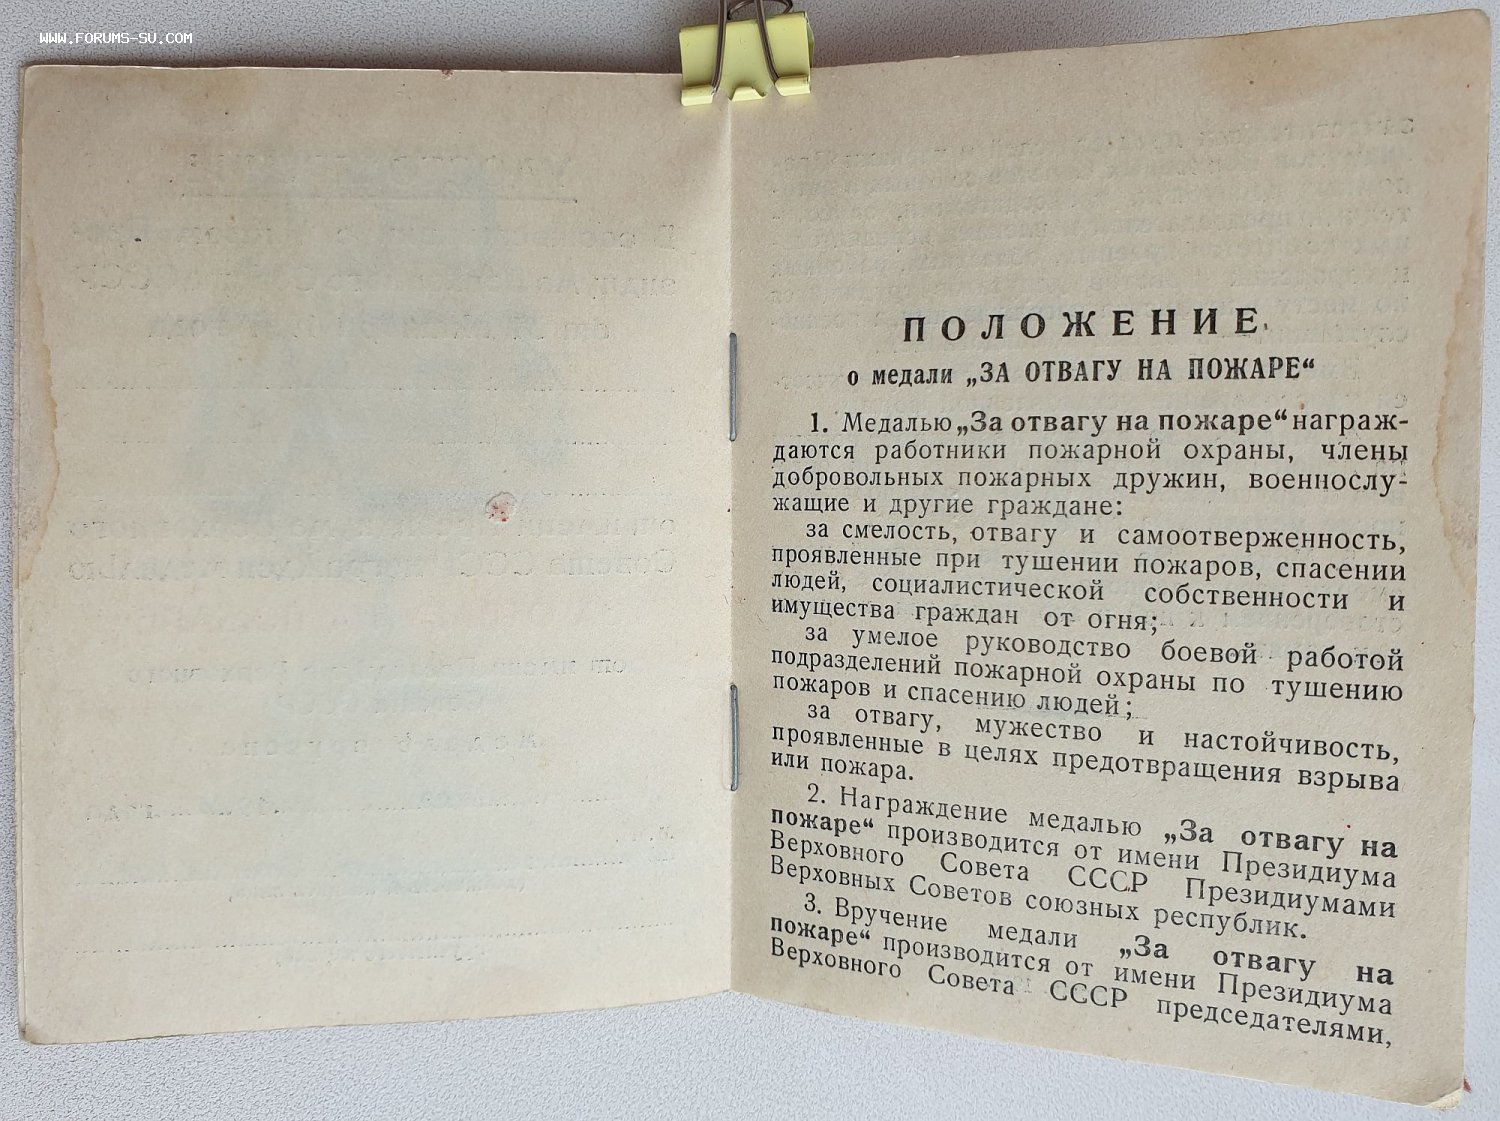 WWW.FORUMS-SU.COM
ПОЛОЖЕНИЕ
о медали „ЗА ОТВАГУ НА ПОЖАРЕ“
1. Медалью „За отвагу на пожаре“ награж-
даются работники пожарной охраны, члены
добровольных пожарных дружин, военнослу-
жащие и другие граждане:
за смелость, отвагу и самоотверженность,
проявленные при тушении пожаров, спасении
людей, социалистической собственности и
имущества граждан от огня;
за умелое руководство боевой работой
подразделений пожарной охраны по тушению
пожаров и спасению людей;
за отвагу, мужество и настойчивость,
проявленные в целях предотвращения взрыва
или пожара.
2. Награждение медалью „За отвагу на
пожаре“ производится от имени Президиума
Верховного Совета СССР Президиумами
Верховных Советов союзных республик.
3. Вручение медали „За отвагу на
пожаре“ производится от имени Президиума
Верховного Совета СССР председателями,